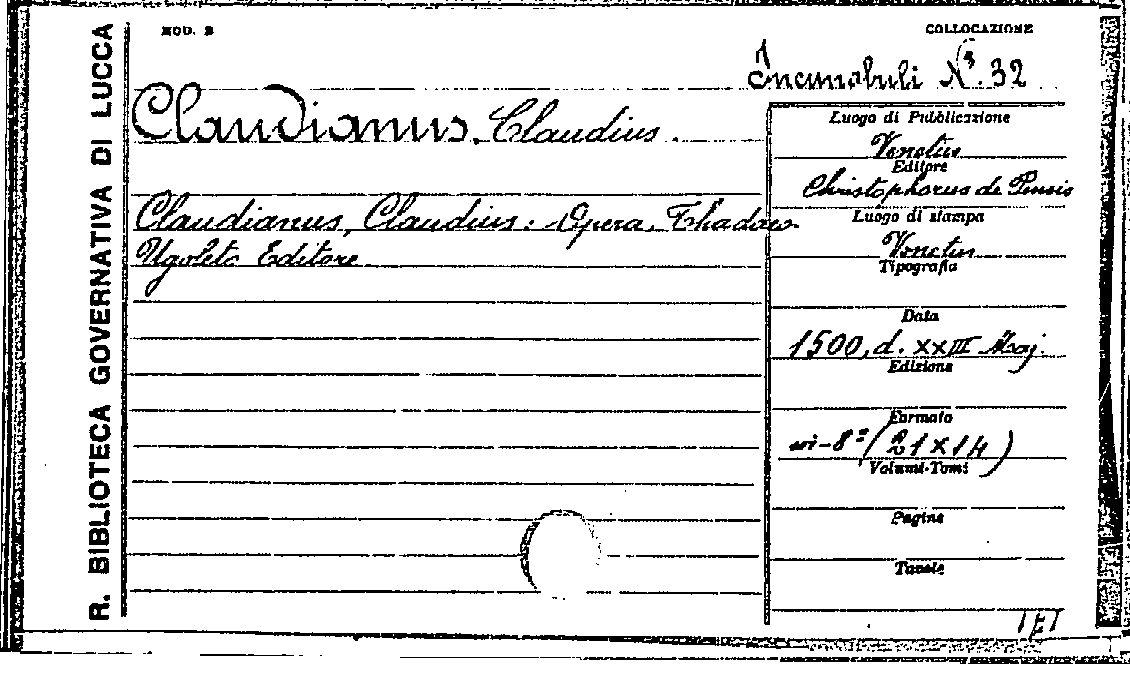 R. BIBLIOTECA GOVERNATIVA DI LUCCA
MOD. B
COLLOCAZIONE
Incunabuli N. 32
Claudianus, Claudius.
Claudianus, Claudius: Opera. Thadaeo
Ugoleto Editore
Luogo di Pubblicazione
Venetiis
Editore
Christophorus de Pensis
Luogo di stampa
Venetiis
Tipografia
Data
1500, d. XXIII Maj.
Edizione
Formato
in-8° (21 x 14)
Volumi-Tomi
Pagine
Tavole